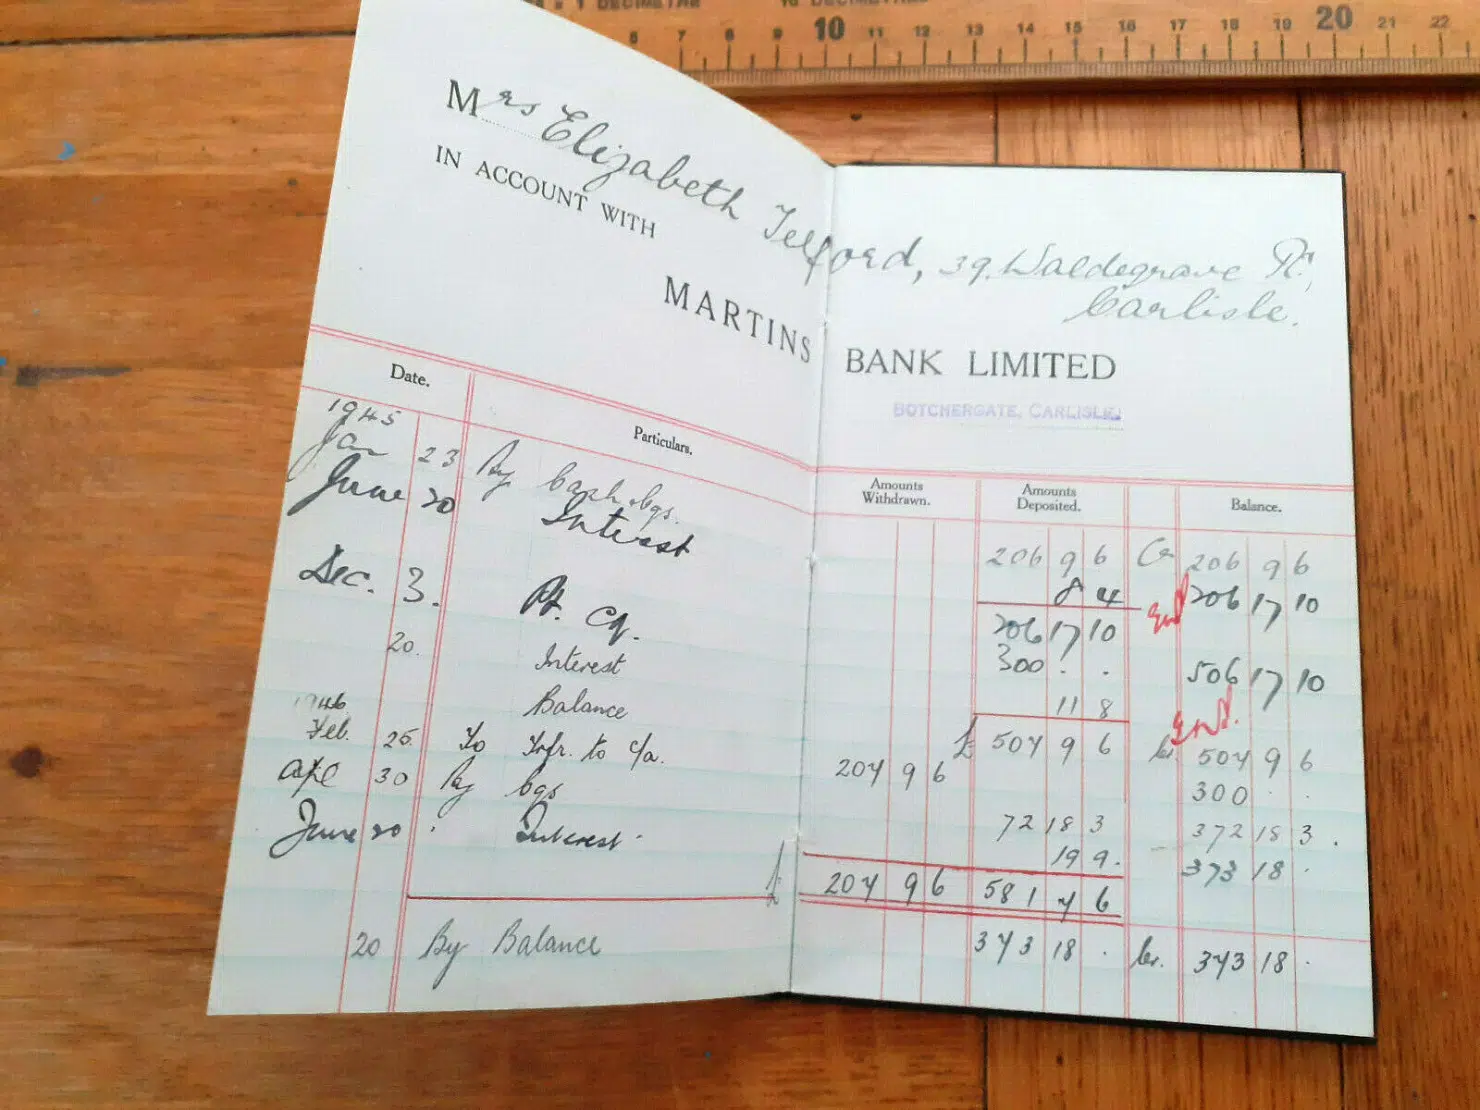 1 DECIMETRE 10 DECIMETRE
6 7 8 9 10 11 12 13 14 15 16 17 18 19 20 21 22
Mrs Elizabeth Telford, 39. Waldegrave Rd,
Carlisle.
IN ACCOUNT WITH
MARTINS BANK LIMITED
BOTCHERGATE, CARLISLE.
Date. Particulars. Amounts Withdrawn. Amounts Deposited. Balance.
1945
Jan 23 By Cash bgs. 206 9 6 Cr 206 9 6
June 20 Interest 8 4 206 17 10
206 17 10
Dec. 3. Pt. Cq. 300 . . 506 17 10
20. Interest 11 8
Balance £ 507 9 6 Cr. 507 9 6
1946
Feb. 26 To Trfr. to C/a. 207 9 6 300 . .
Apl 30 By bgs 72 18 3 372 18 3.
June 20 Interest 19 9. 373 18 .
£ 207 9 6 581 7 6
20 By Balance 373 18 . Cr. 373 18 .